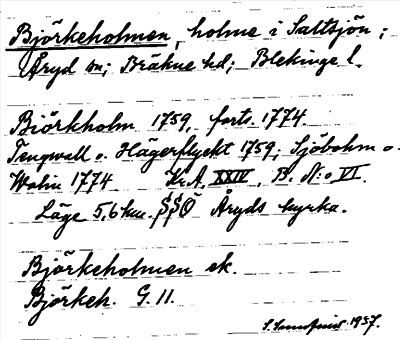 Björkeholmen, holme i Saltsjön;
Åryd sn; Bräkne hd; Blekinge l.
Biörkholm 1759, forts. 1774
Tengwall o. Hägerflyckt 1759; Sjöbohm o.
Wolin 1774 Kr.A. XXIV, B. N:o VI.
Läge 5,6 km. SSÖ Åryds kyrka.
Björkeholmen ek.
Björkeh. G. 11.
1937.